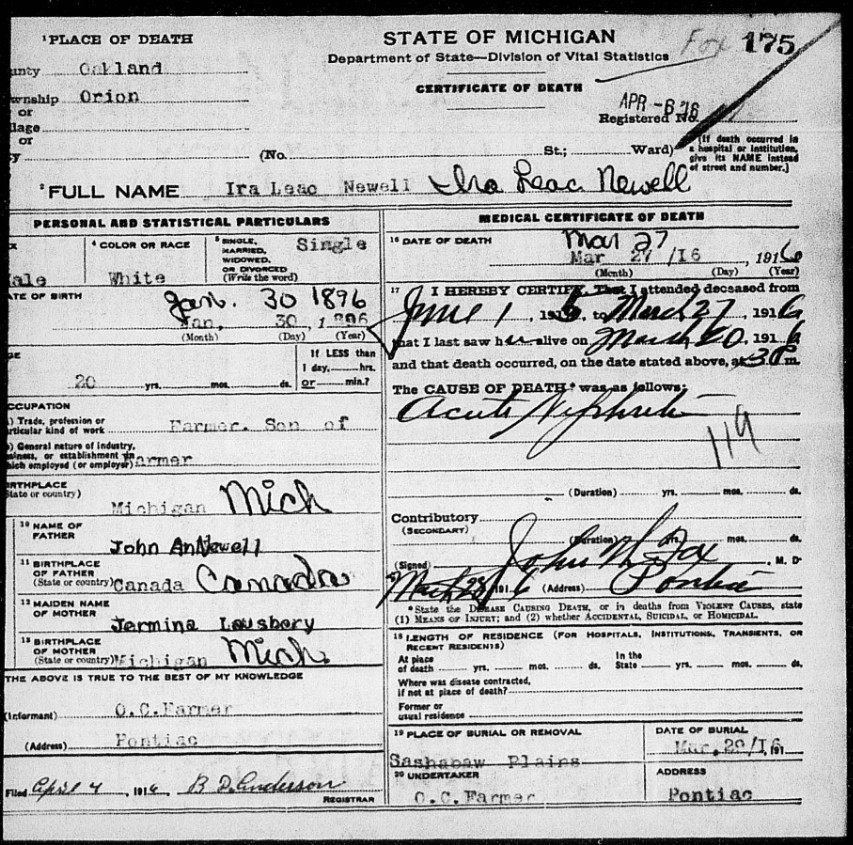 ¹PLACE OF DEATH
STATE OF MICHIGAN
Fox 175
Department of State—Division of Vital Statistics
unty Oakland
CERTIFICATE OF DEATH
wnship Orion
or
APR -6 '16
Registered No.
llage
or
y (No. St.; Ward)
[If death occurred in
a hospital or institution,
give its NAME instead
of street and number.]
²FULL NAME Ira Leac Newell Ira Leac Newell
PERSONAL AND STATISTICAL PARTICULARS
X
Male
⁴ COLOR OR RACE
White
⁵ SINGLE,
MARRIED,
WIDOWED,
OR DIVORCED
(Write the word)
Single
Jan. 30 1896
ATE OF BIRTH
Jan. 30, 1896
(Month) (Day) (Year)
GE
20 yrs. mos. ds.
If LESS than
1 day, hrs.
or min.?
CCUPATION
) Trade, profession or
rticular kind of work Farmer. Son of
) General nature of industry,
siness, or establishment in
hich employed (or employer) Farmer
IRTHPLACE
State or country)
Michigan Mich
¹⁰ NAME OF
FATHER
John A Newell
¹¹ BIRTHPLACE
OF FATHER
(State or country) Canada Canada
¹² MAIDEN NAME
OF MOTHER
Jermina Lousbery
¹³ BIRTHPLACE
OF MOTHER
(State or country) Michigan Mich.
THE ABOVE IS TRUE TO THE BEST OF MY KNOWLEDGE
(Informant) O.C.Farmer
(Address) Pontiac
Filed April 4, 1916 B D Anderson
REGISTRAR
MEDICAL CERTIFICATE OF DEATH
Mar 27
¹⁶ DATE OF DEATH
Mar 27 /16 1916
(Month) (Day) (Year)
¹⁷ I HEREBY CERTIFY, That I attended deceased from
June 1, 1915, to March 27, 1916
that I last saw h alive on March 20, 1916
and that death occurred, on the date stated above, at 3 P m.
The CAUSE OF DEATH* was as follows:
Acute Nephritis
119
(Duration) yrs. mos. ds.
Contributory
(SECONDARY)
(Duration) yrs. mos. ds.
(Signed) John N Fox, M. D.
March 28, 1916 (Address) Pontiac
*State the DISEASE CAUSING DEATH, or in deaths from VIOLENT CAUSES, state
(1) MEANS OF INJURY; and (2) whether ACCIDENTAL, SUICIDAL, or HOMICIDAL.
¹⁸ LENGTH OF RESIDENCE (FOR HOSPITALS, INSTITUTIONS, TRANSIENTS, OR
RECENT RESIDENTS)
At place
of death yrs. mos. ds.
In the
State yrs. mos. ds.
Where was disease contracted,
if not at place of death?
Former or
usual residence
¹⁹ PLACE OF BURIAL OR REMOVAL
Sashabaw Plains
DATE OF BURIAL
Mar. 29/16 191
²⁰ UNDERTAKER
O.C.Farmer
ADDRESS
Pontiac